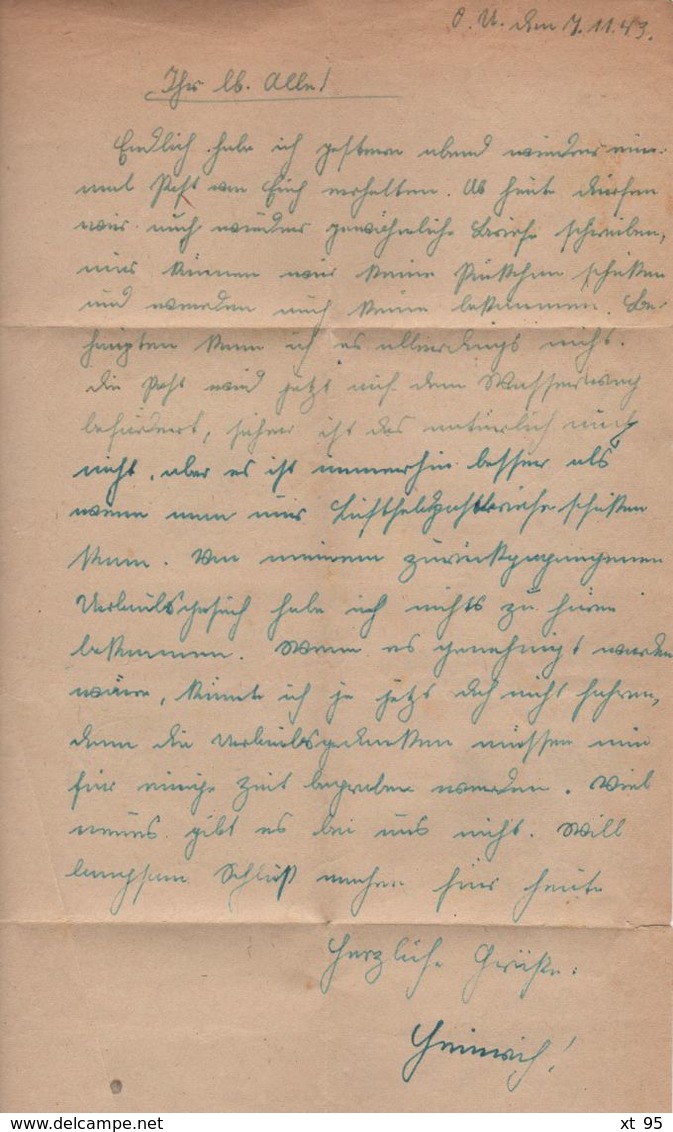 O. U. den 7.11.43.
Ihr lb. Alle!
Endlich habe ich gestern abend wieder ein-
mal Post von Euch erhalten. Ab heute dürfen
wir auch wieder gewöhnliche Briefe schreiben,
nur können wir keine Päckchen schicken
und werden auch keine bekommen. Be-
haupten kann ich es allerdings nicht.
Die Post wird jetzt auf dem Wasserweg
befördert, sicher ist das natürlich auch
nicht, aber es ist immerhin besser als
wenn man nur Luftfeldpostbriefe schicken
kann. Von meinem zurückgegangenen
Urlaubsgesuch habe ich nichts zu hören
bekommen. Wenn es genehmigt worden
wäre, könnte ich ja jetzt doch nicht fahren,
denn die Urlaubsgedanken müssen nun
für einige Zeit begraben werden. Viel
neues gibt es bei uns nicht. Will
langsam Schluß machen für heute
Herzliche Grüße:
Heinrich!
delcampe.net
xt 95